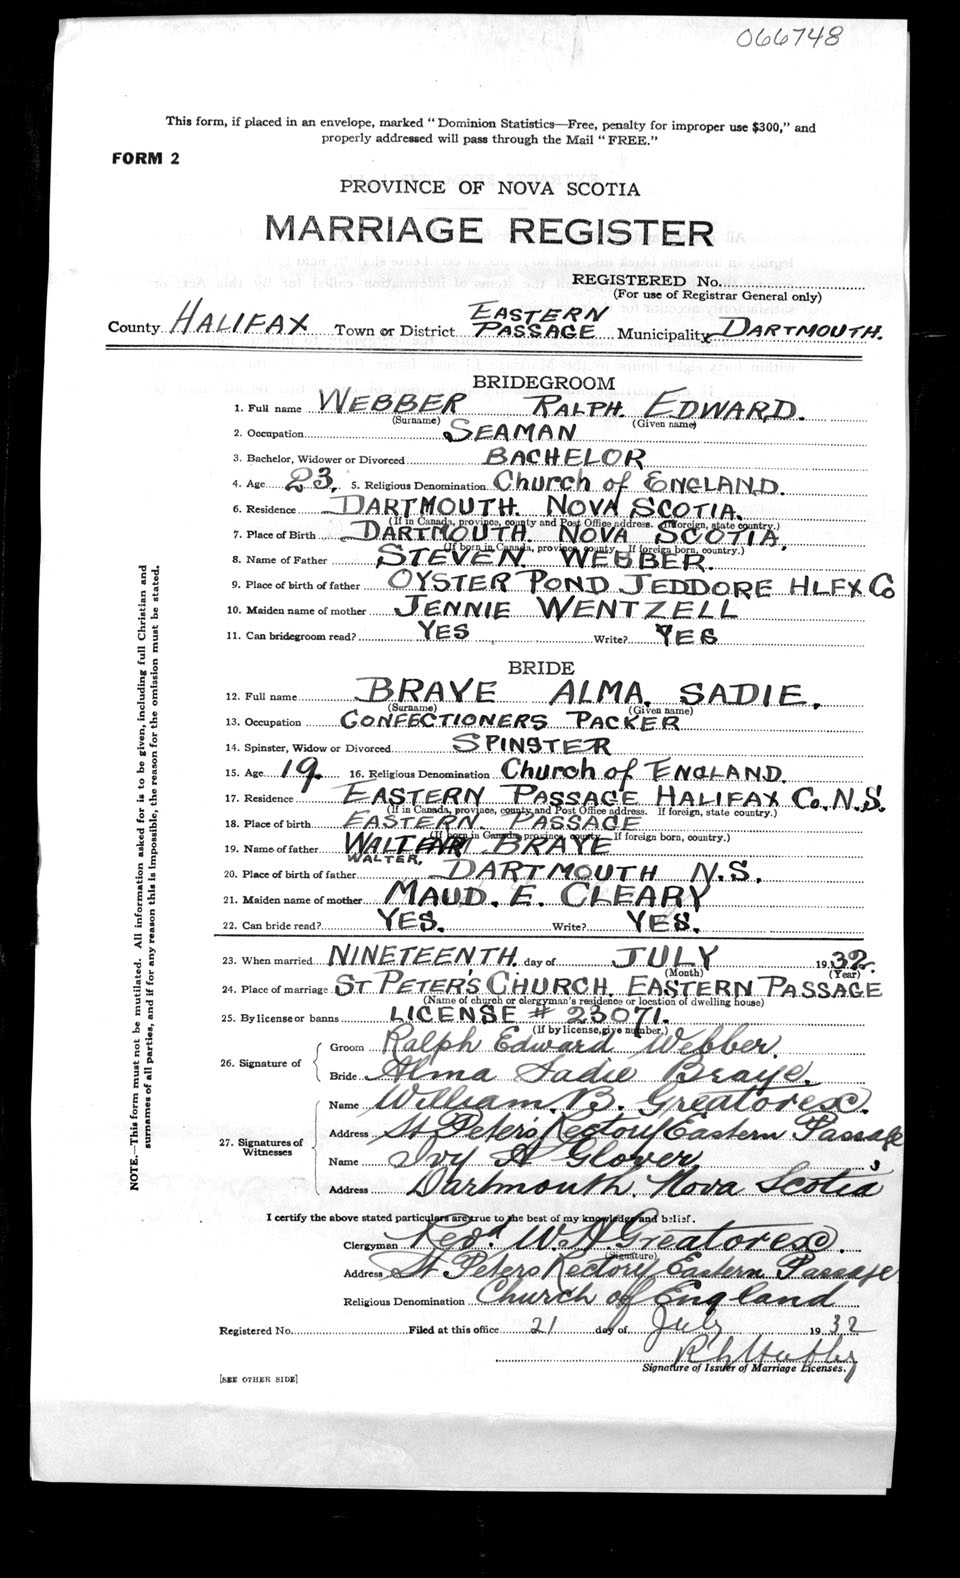 066748
This form, if placed in an envelope, marked "Dominion Statistics—Free, penalty for improper use $300," and
properly addressed will pass through the Mail "FREE."
FORM 2
PROVINCE OF NOVA SCOTIA
MARRIAGE REGISTER
REGISTERED No.
(For use of Registrar General only)
County HALIFAX Town or District EASTERN PASSAGE Municipality DARTMOUTH.
BRIDEGROOM
1. Full name WEBBER RALPH EDWARD.
(Surname) (Given name)
2. Occupation SEAMAN
3. Bachelor, Widower or Divorced BACHELOR
4. Age 23. 5. Religious Denomination Church of ENGLAND.
6. Residence DARTMOUTH. NOVA SCOTIA.
(If in Canada, province, county and Post Office address. If foreign, state country.)
7. Place of Birth DARTMOUTH. NOVA SCOTIA,
(If born in Canada, province, county. If foreign born, country.)
8. Name of Father STEVEN. WEBBER.
9. Place of birth of father OYSTER POND JEDDORE HLFX Co
10. Maiden name of mother JENNIE WENTZELL
11. Can bridegroom read? YES Write? YES
BRIDE
12. Full name BRAYE ALMA. SADIE.
(Surname) (Given name)
13. Occupation CONFECTIONERS PACKER
14. Spinster, Widow or Divorced SPINSTER
15. Age 19. 16. Religious Denomination Church of ENGLAND.
17. Residence EASTERN PASSAGE HALIFAX Co. N.S.
(If in Canada, province, county, and Post Office address. If foreign, state country.)
18. Place of birth EASTERN. PASSAGE
(If born in Canada, province, county. If foreign born, country.)
19. Name of father BRAYE
WALTER.
20. Place of birth of father DARTMOUTH N.S.
21. Maiden name of mother MAUD. E. CLEARY
22. Can bride read? YES. Write? YES.
23. When married NINETEENTH. day of JULY 1932.
(Month) (Year)
24. Place of marriage ST PETER'S CHURCH. EASTERN PASSAGE
(Name of church or clergyman's residence or location of dwelling house)
25. By license or banns LICENSE # 23071.
(If by license, give number.)
26. Signature of
Groom Ralph Edward Webber.
Bride Alma Sadie Braye.
27. Signatures of Witnesses
Name William. B. Greatorex.
Address St Peters Rectory Eastern Passage
Name Ivy A Glover
Address Dartmouth. Nova Scotia
I certify the above stated particulars are true to the best of my knowledge and belief.
Clergyman Revd. W. H. Greatorex.
(Signature)
Address St Peters Rectory Eastern Passage
Religious Denomination Church of England
Registered No. Filed at this office 21 day of July 1932
Signature of Issuer of Marriage Licenses.
[SEE OTHER SIDE]
NOTE.—This form must not be mutilated. All information asked for is to be given, including full Christian and
surnames of all parties, and if for any reason this is impossible, the reason for the omission must be stated.